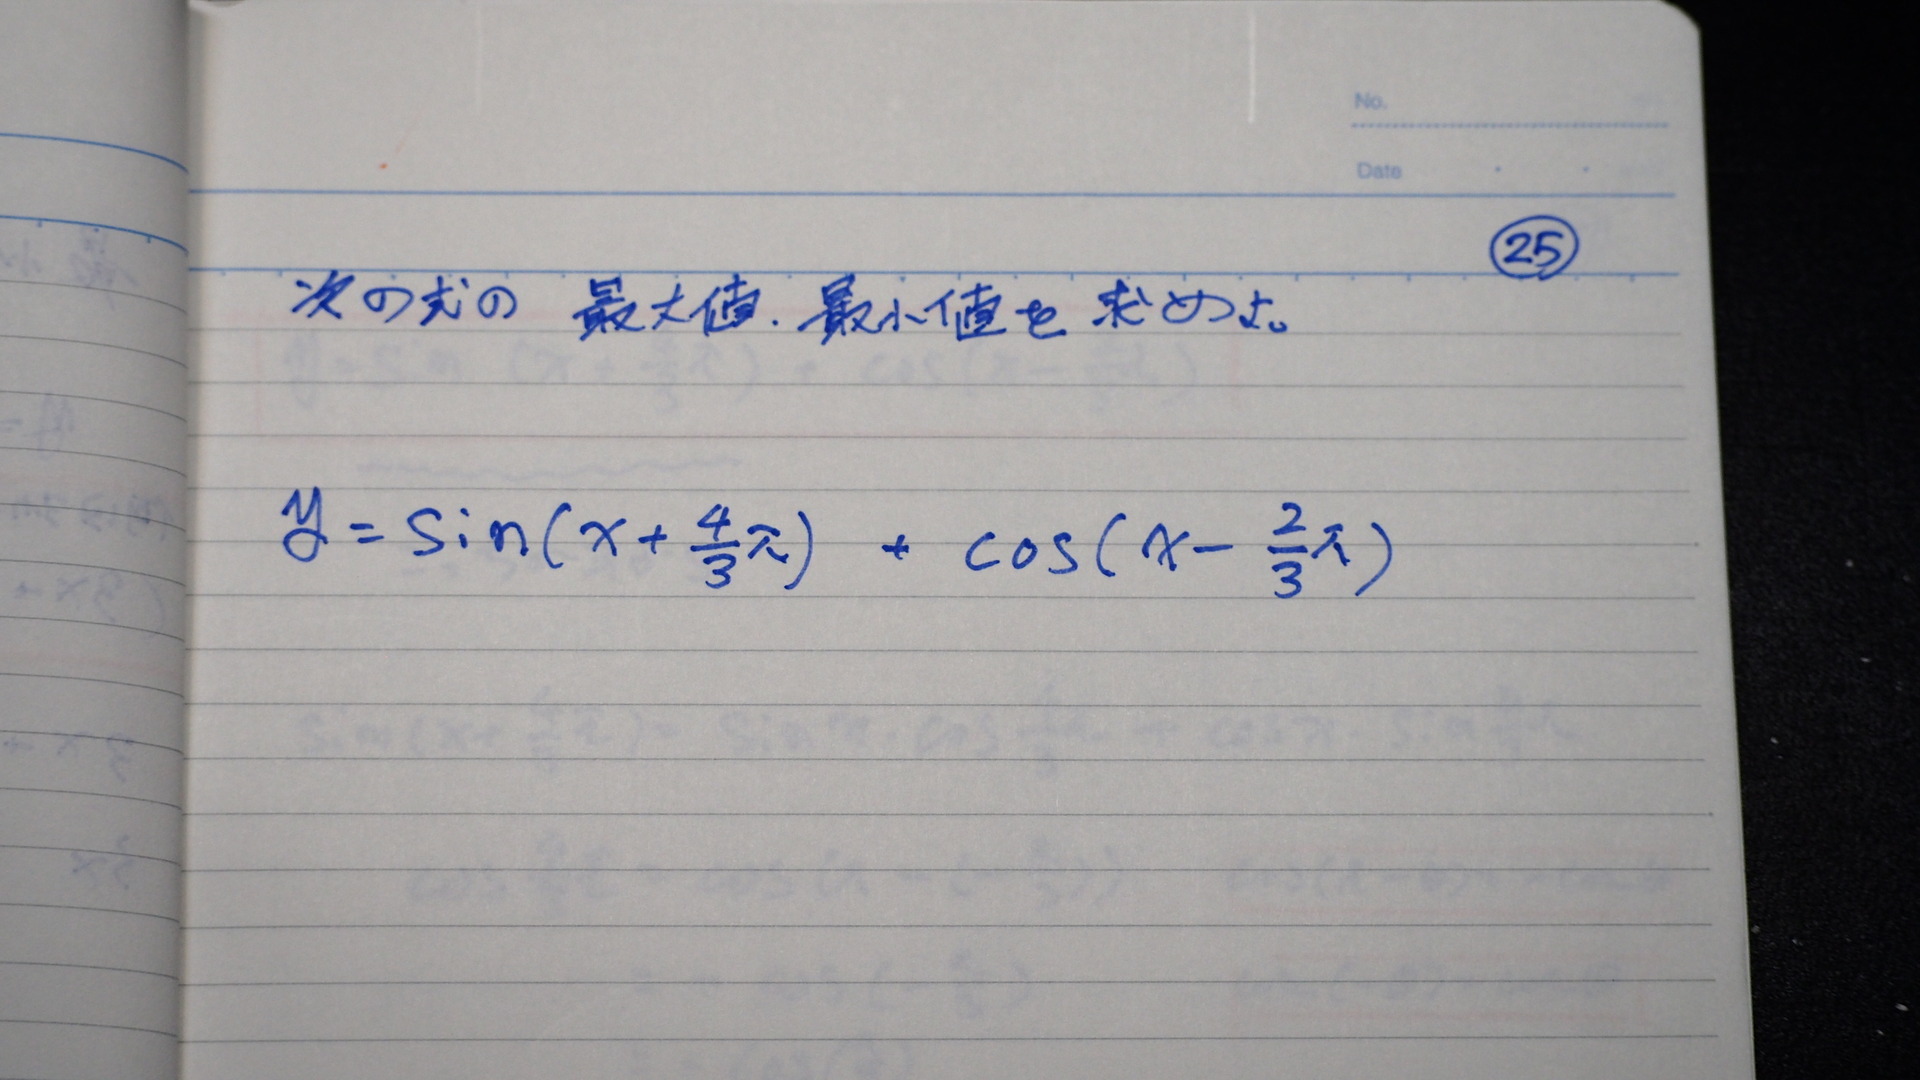 No.
Date
㉕
次の式の 最大値、最小値を求めよ。
y = sin(x + 4/3 π) + cos(x − 2/3 π)